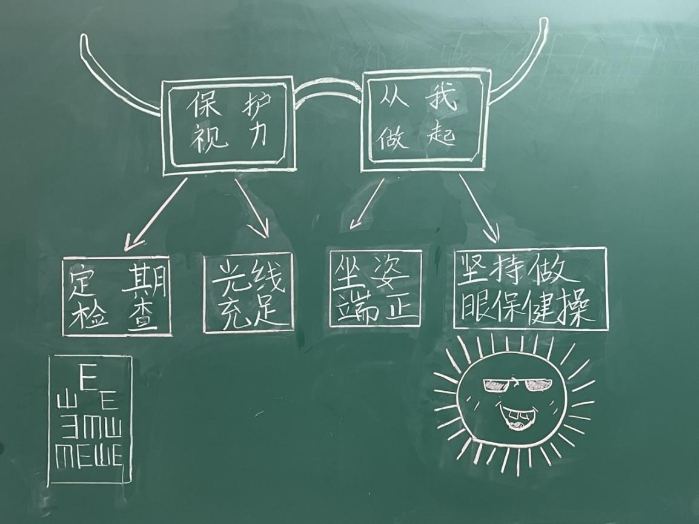 保护
视力
从我
做起
定期
检查
光线
充足
坐姿
端正
坚持做
眼保健操
E
ШE
ЭmШ
mEШE